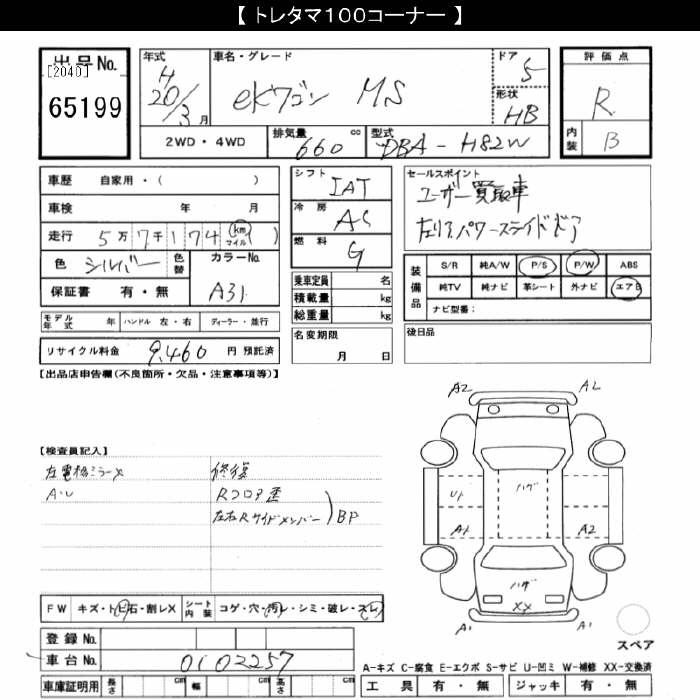 【 トレタマ100コーナー 】
出品No.
[2040]
65199
年式
H
20/3 月
車名・グレード
eKワゴン MS
ドア
5
形状
HB
評価点
R
内装
B
2WD・4WD
排気量
660 cc
型式
DBA-H82W
車歴 自家用・( )
車検 年 月
走行 5万7千174 (km マイル)
色 シルバー 色替
カラーNo.
A31
保証書 有・無
シフト
IAT
冷房
AC
燃料
G
乗車定員 名
積載量 kg
総重量 kg
名変期限
月 日
セールスポイント
ユーザー買取車
左リアパワースライドドア
装備品
S/R 純A/W P/S P/W ABS
純TV 純ナビ 革シート 外ナビ エアB
ナビ型番:
後日品
モデル年式 年 ハンドル 左・右 ディーラー・並行
リサイクル料金 9,460 円 預託済
【出品店申告欄(不良箇所・欠品・注意事項等)】
【検査員記入】
左電格ミラーX
A・U
修復
Rフロア歪
左右Rサイドメンバー
BP
A2 A2
U1 ハゲ
A1 A2
ハゲ
XX
A1 A1
スペア
FW キズ・トビ石・割レX
シート内装 コゲ・穴・汚レ・シミ・破レ・スレ
登録No.
車台No. 0102257
車庫証明用 長さ cm 幅 cm 高さ cm
A-キズ C-腐食 E-エクボ S-サビ U-凹ミ W-補修 XX-交換済
工具 有・無 ジャッキ 有・無